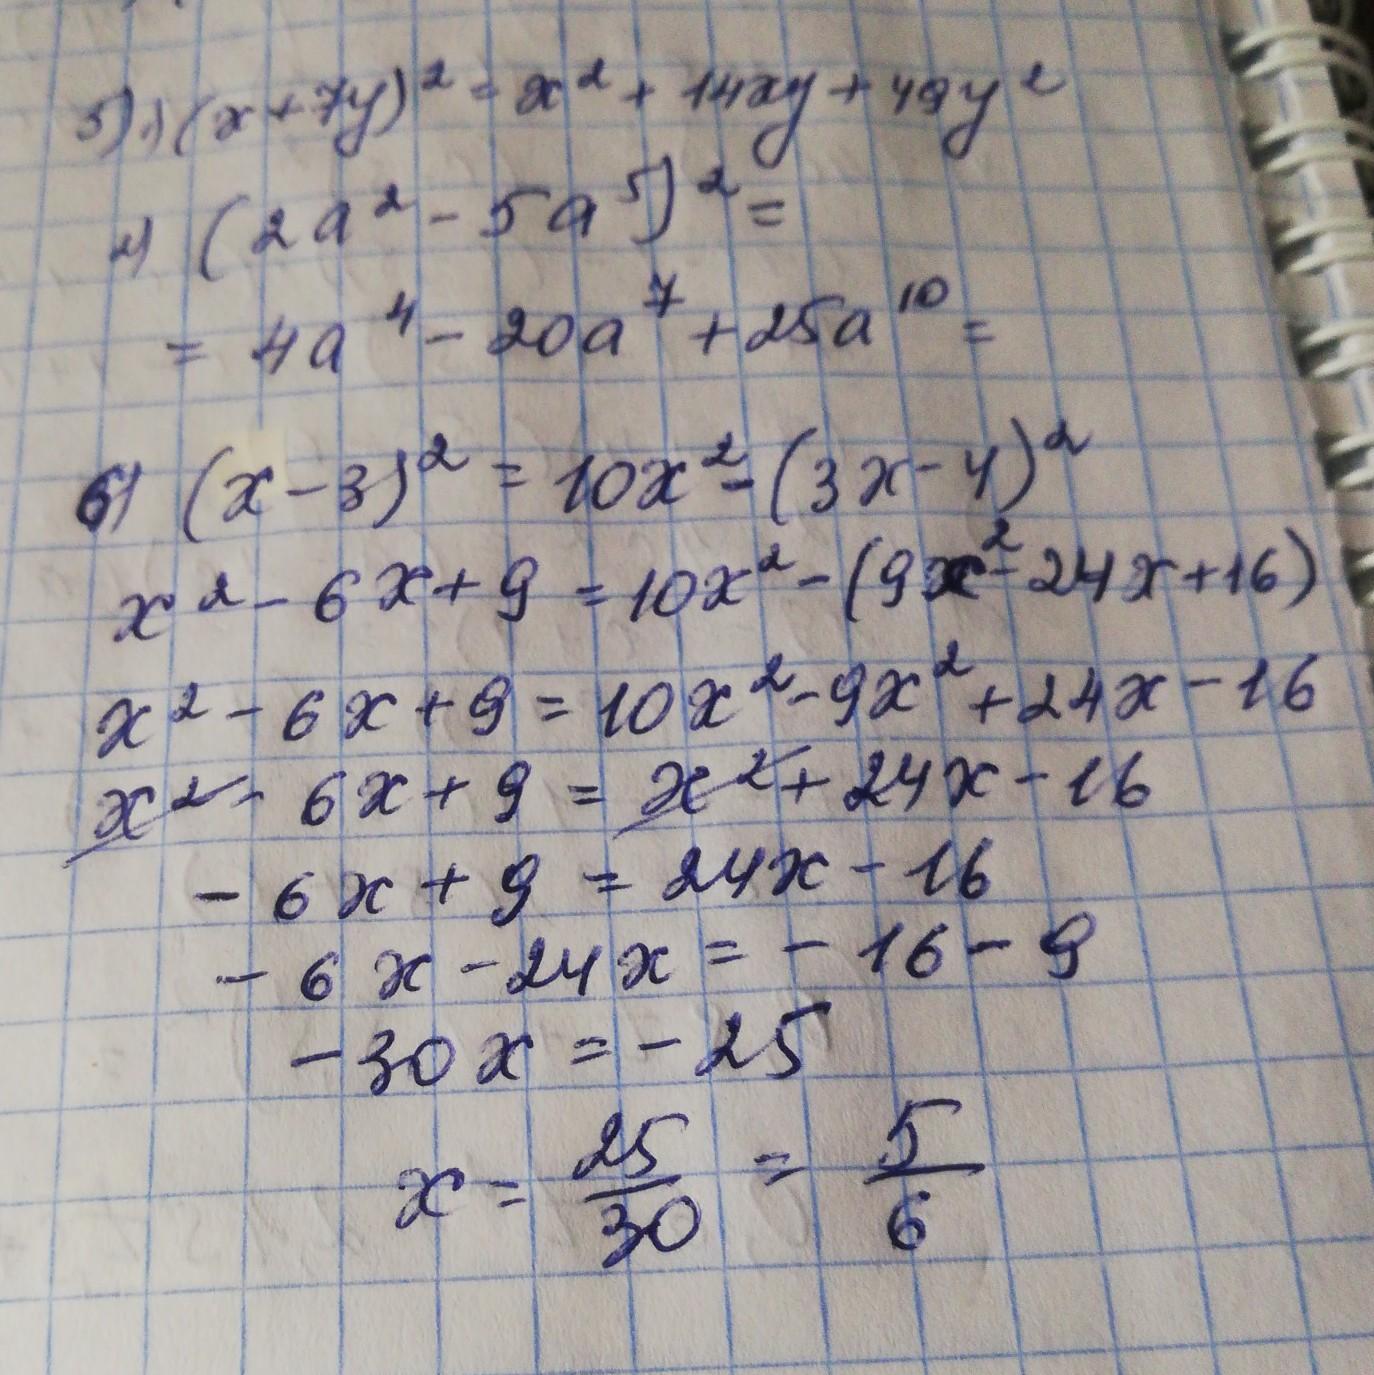 5) 1) (x+7y)² = x² + 14xy + 49y²
2) (2a² - 5a⁵)² =
= 4a⁴ - 20a⁷ + 25a¹⁰ =
6) (x-3)² = 10x² - (3x-4)²
x² - 6x + 9 = 10x² - (9x² - 24x + 16)
x² - 6x + 9 = 10x² - 9x² + 24x - 16
x² - 6x + 9 = x² + 24x - 16
- 6x + 9 = 24x - 16
- 6x - 24x = - 16 - 9
- 30x = - 25
x = 25/30 = 5/6